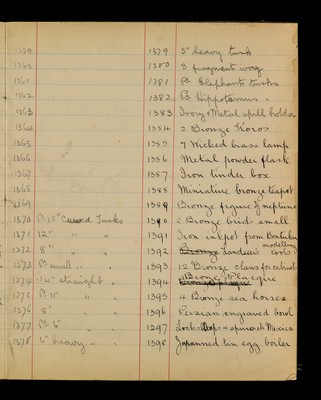 1359 1379 5" heavy tusk
1360 1380 3 fragments ivory
1361 1381 Pr Elephants tusks
1362 1382 Pr Hippotamus "
1363 1383 Ivory & Metal spill holder
1364 1384 2 Bronze Koros
1365 1385 7 Wicked brass lamp
1366 1386 Metal powder flask
1367 1387 Iron tinder box
1368 1388 Miniature bronze teapot
1369 1389 Bronze figure of neptune
1370 Pr 18" Curved Tusks 1390 2 Bronze birds small
1371 12" " " 1391 Iron inkpot from
1372 8" " " 1392 Bronze Landseers modelling tools
1373 Pr small " " 1393 12 Bronze claws for cabinet
1374 14" straight " 1394 Bronze plaque
1375 Pr 11" " " 1395 4 Bronze sea horses
1376 8" " " 1396 Persian engraved bowl
1377 Pr 6" " " 1297 Mexico
1378 6" heavy " " 1398 Japanned tin egg boiler